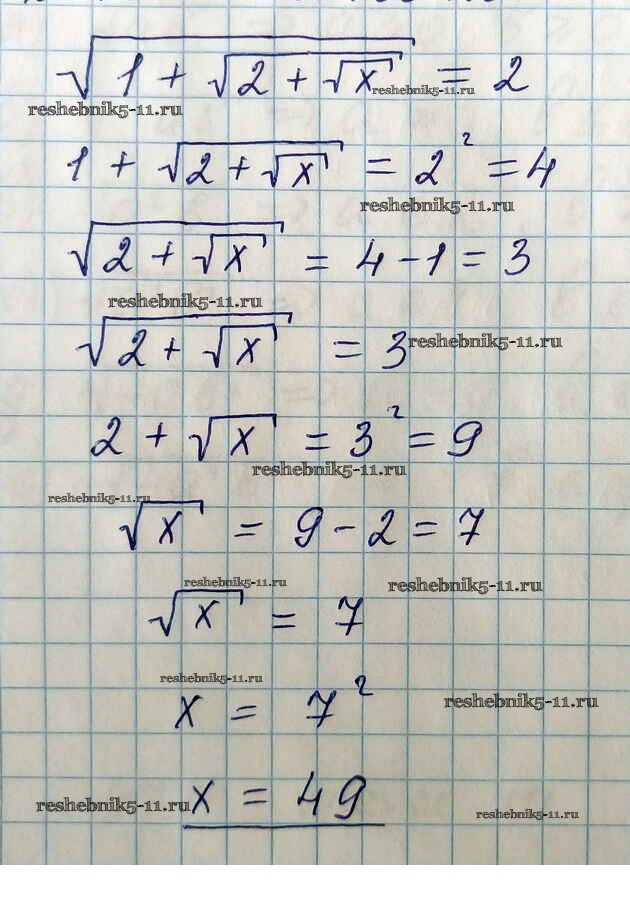 √(1 + √(2 + √x)) = 2
reshebnik5-11.ru
reshebnik5-11.ru
1 + √(2 + √x) = 2² = 4
reshebnik5-11.ru
√(2 + √x) = 4 - 1 = 3
reshebnik5-11.ru
√(2 + √x) = 3
reshebnik5-11.ru
2 + √x = 3² = 9
reshebnik5-11.ru
reshebnik5-11.ru
√x = 9 - 2 = 7
reshebnik5-11.ru
reshebnik5-11.ru
√x = 7
reshebnik5-11.ru
x = 7²
reshebnik5-11.ru
x = 49
reshebnik5-11.ru
reshebnik5-11.ru